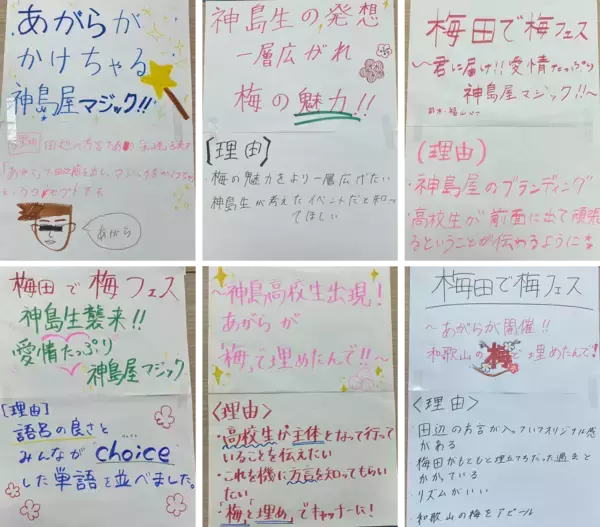 あがらが
かけちゃる
神島屋マジック!!
理由
あがら
神島生の発想
一層広がれ
梅の魅力!!
[理由]
梅の魅力をより一層広げたい
神島生が考えたイベントだと知っ
てほしい
梅田で梅フェス
〜君に届け!!愛情たっぷり
神島屋マジック!!〜
(理由)
・神島屋のブランディング
・高校生が前面に出て頑張
るということが伝わるように
梅田で梅フェス
神島生襲来!!
愛情たっぷり
神島屋マジック
[理由]
語呂の良さと
みんながchoice
した単語を並べました。
〜神島高校生出現!
あがらが
「梅」で埋めたんで!!〜
<理由>
・高校生が主体となって行って
いることを伝えたい
・これを機に方言を知ってもらい
たい
・「梅」と「埋め」でキャッチーに!
梅田で梅フェス
〜あがらが開催!!
和歌山の梅で埋めたんで!
<理由>
・田辺の方言が入っていてオリジナル感
がある
・梅田がもともと埋立ちだった過去と
かかっている
・リズムがいい
・和歌山の梅をアピール